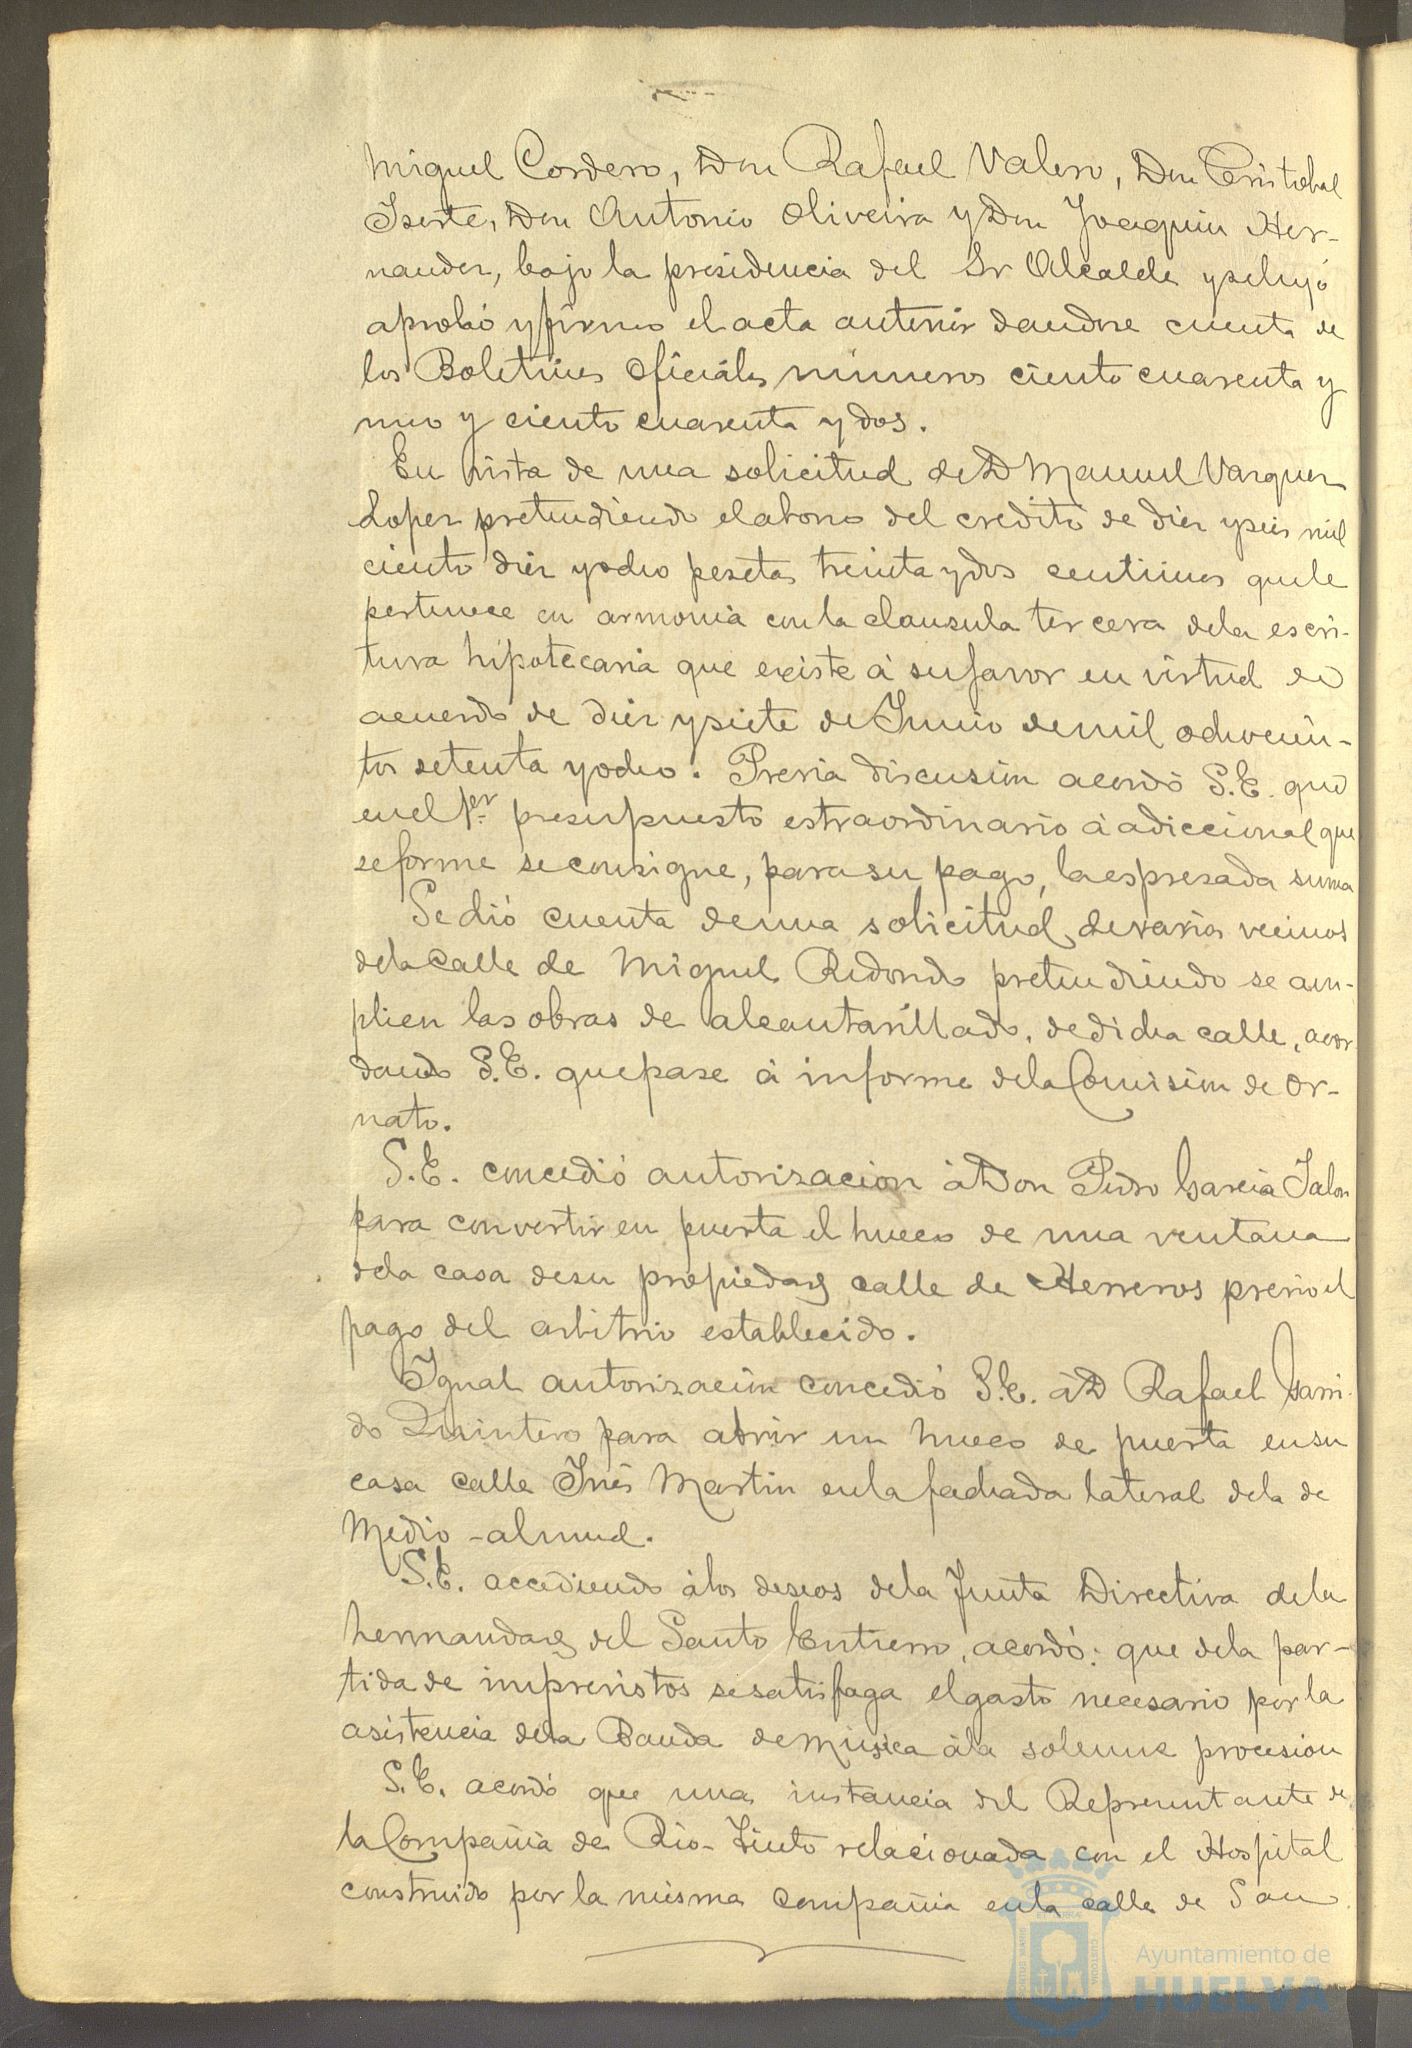 Miguel Cordero, Don Rafael Valero, Don Cristobal
Iserte, Don Antonio Oliveira y Don Joaquin Her-
nandez, bajo la presidencia del Sr Alcalde y se leyó
aprobó y firmó el acta anterior dandose cuenta de
los Boletines Oficiales números ciento cuarenta y
uno y ciento cuarenta y dos.
En vista de una solicitud de D Manuel Vazquez
Lopez pretendiendo el abono del credito de diez y seis mil
ciento diez y ocho pesetas treinta y dos centimos que le
pertenece en armonia con la clausula tercera de la escri-
tura hipotecaria que existe á su favor en virtud de
acuerdo de diez y siete de Junio de mil ochocien-
tos setenta y ocho. Previa discusión acordó S.E. que
en el pr. presupuesto estraordinario á adiccional que
se forme se consigne, para su pago, la espresada suma
Se dió cuenta de una solicitud de varios vecinos
de la calle de Miguel Redondo pretendiendo se am-
plien las obras de alcantarillado, de dicha calle, acor-
dando S.E. que pase á informe de la Comisión de Or-
nato.
S.E. concedió autorizacion á Don Pedro Garcia Jalon
para convertir en puerta el hueco de una ventana
de la casa de su propiedad calle de Herreros previo el
pago del arbitrio establecido.
Igual autorización concedió S.E. á D Rafael Garri-
do Quintero para abrir un hueco de puerta en su
casa calle Inés Martin en la fachada lateral de la de
Medio-almud.
S.E. accediendo á los deseos de la Junta Directiva de la
hermandad del Santo Entierro, acordó: que de la par-
tida de imprevistos se satisfaga el gasto necesario por la
asistencia de la Banda de Música á la solemne procesion
S.E. acordó que una instancia del Representante de
la Compañia de Rio-Tinto relacionada con el Hospital
construido por la misma compañia en la calle de San
Ayuntamiento de
HUELVA